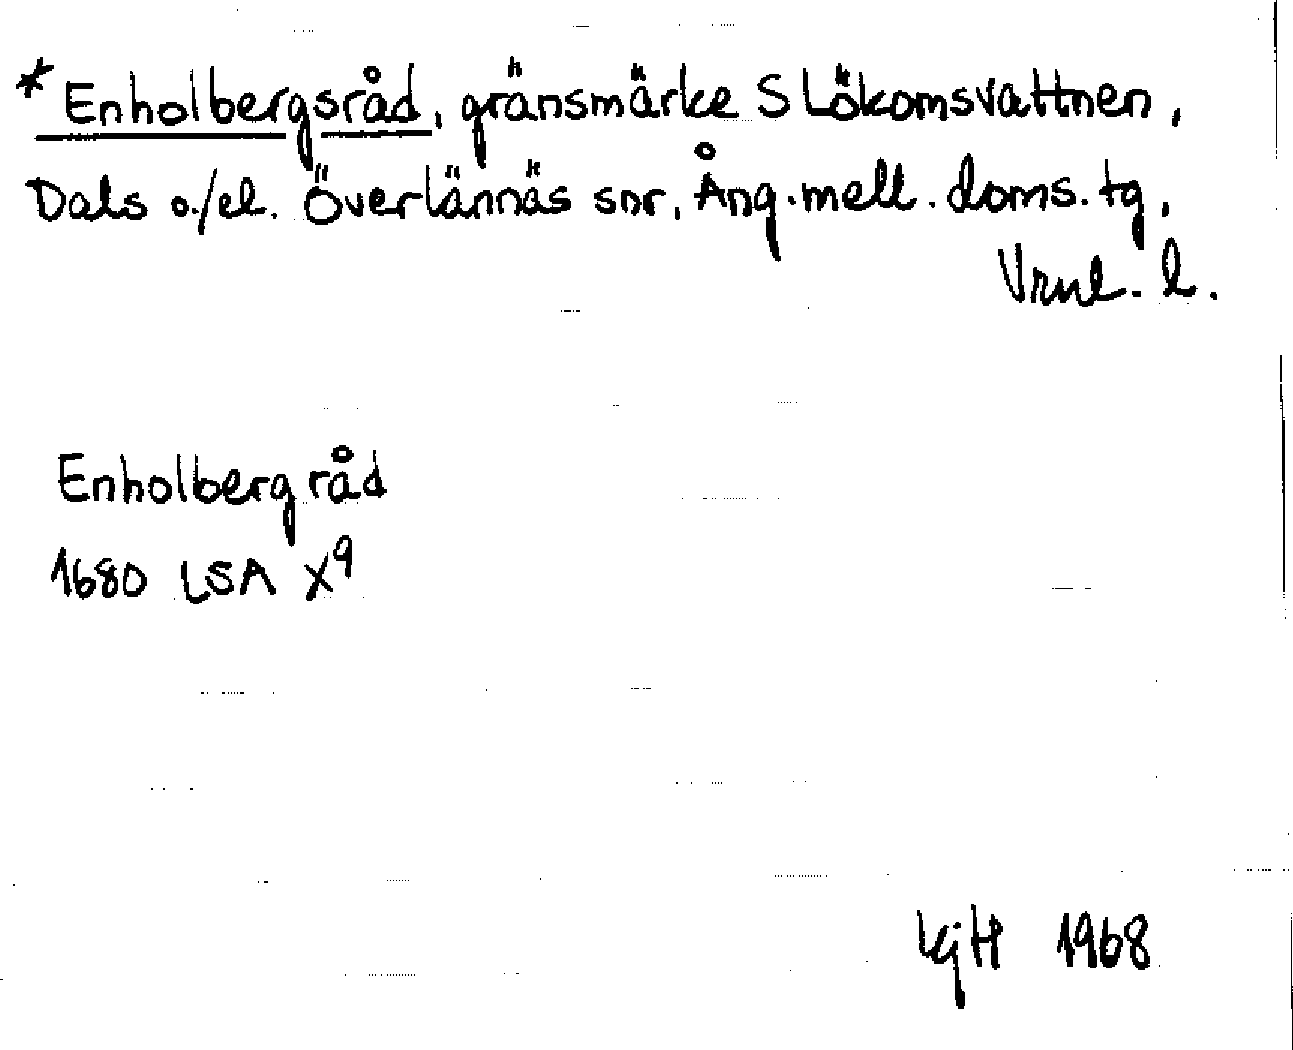 * Enholbergsråd, gränsmärke S Lökomsvattnen,
Dals o./el. Överlännäs snr, Ång. mell. doms. tg,
Vrnl. l.
Enholberg råd
1680 LSA X⁹
KjH 1968